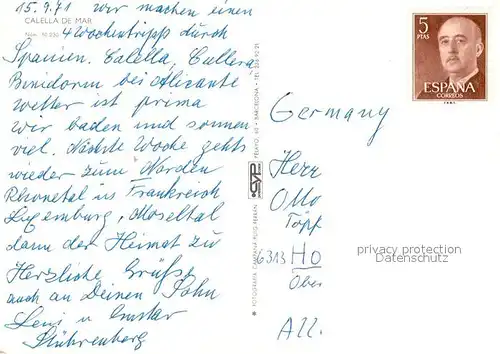 15.9.71 wir machen einen
CALELLA DE MAR
4 Wochentripp durch
Spanien. Calella, Cullera
Benidorm bei Alicante
Wetter ist prima
wir baden und sonnen
viel. Nächste Woche gehts
wieder zum Norden
Rhonetal in Frankreich
Luxemburg, Moseltal
dann der Heimat zu
Herzliche Grüße
auch an Deinen Sohn
Leni u. Gustav
Stührenberg
FOTOGRAFIA CAMPAÑA-PUIG FERRAN
PELAYO, 60 - BARCELONA - TEL.
5
PTAS
ESPAÑA
CORREOS
Germany
Herr
Otto
Töpf
6313 Ho
Ober
All.
privacy protection
Datenschutz